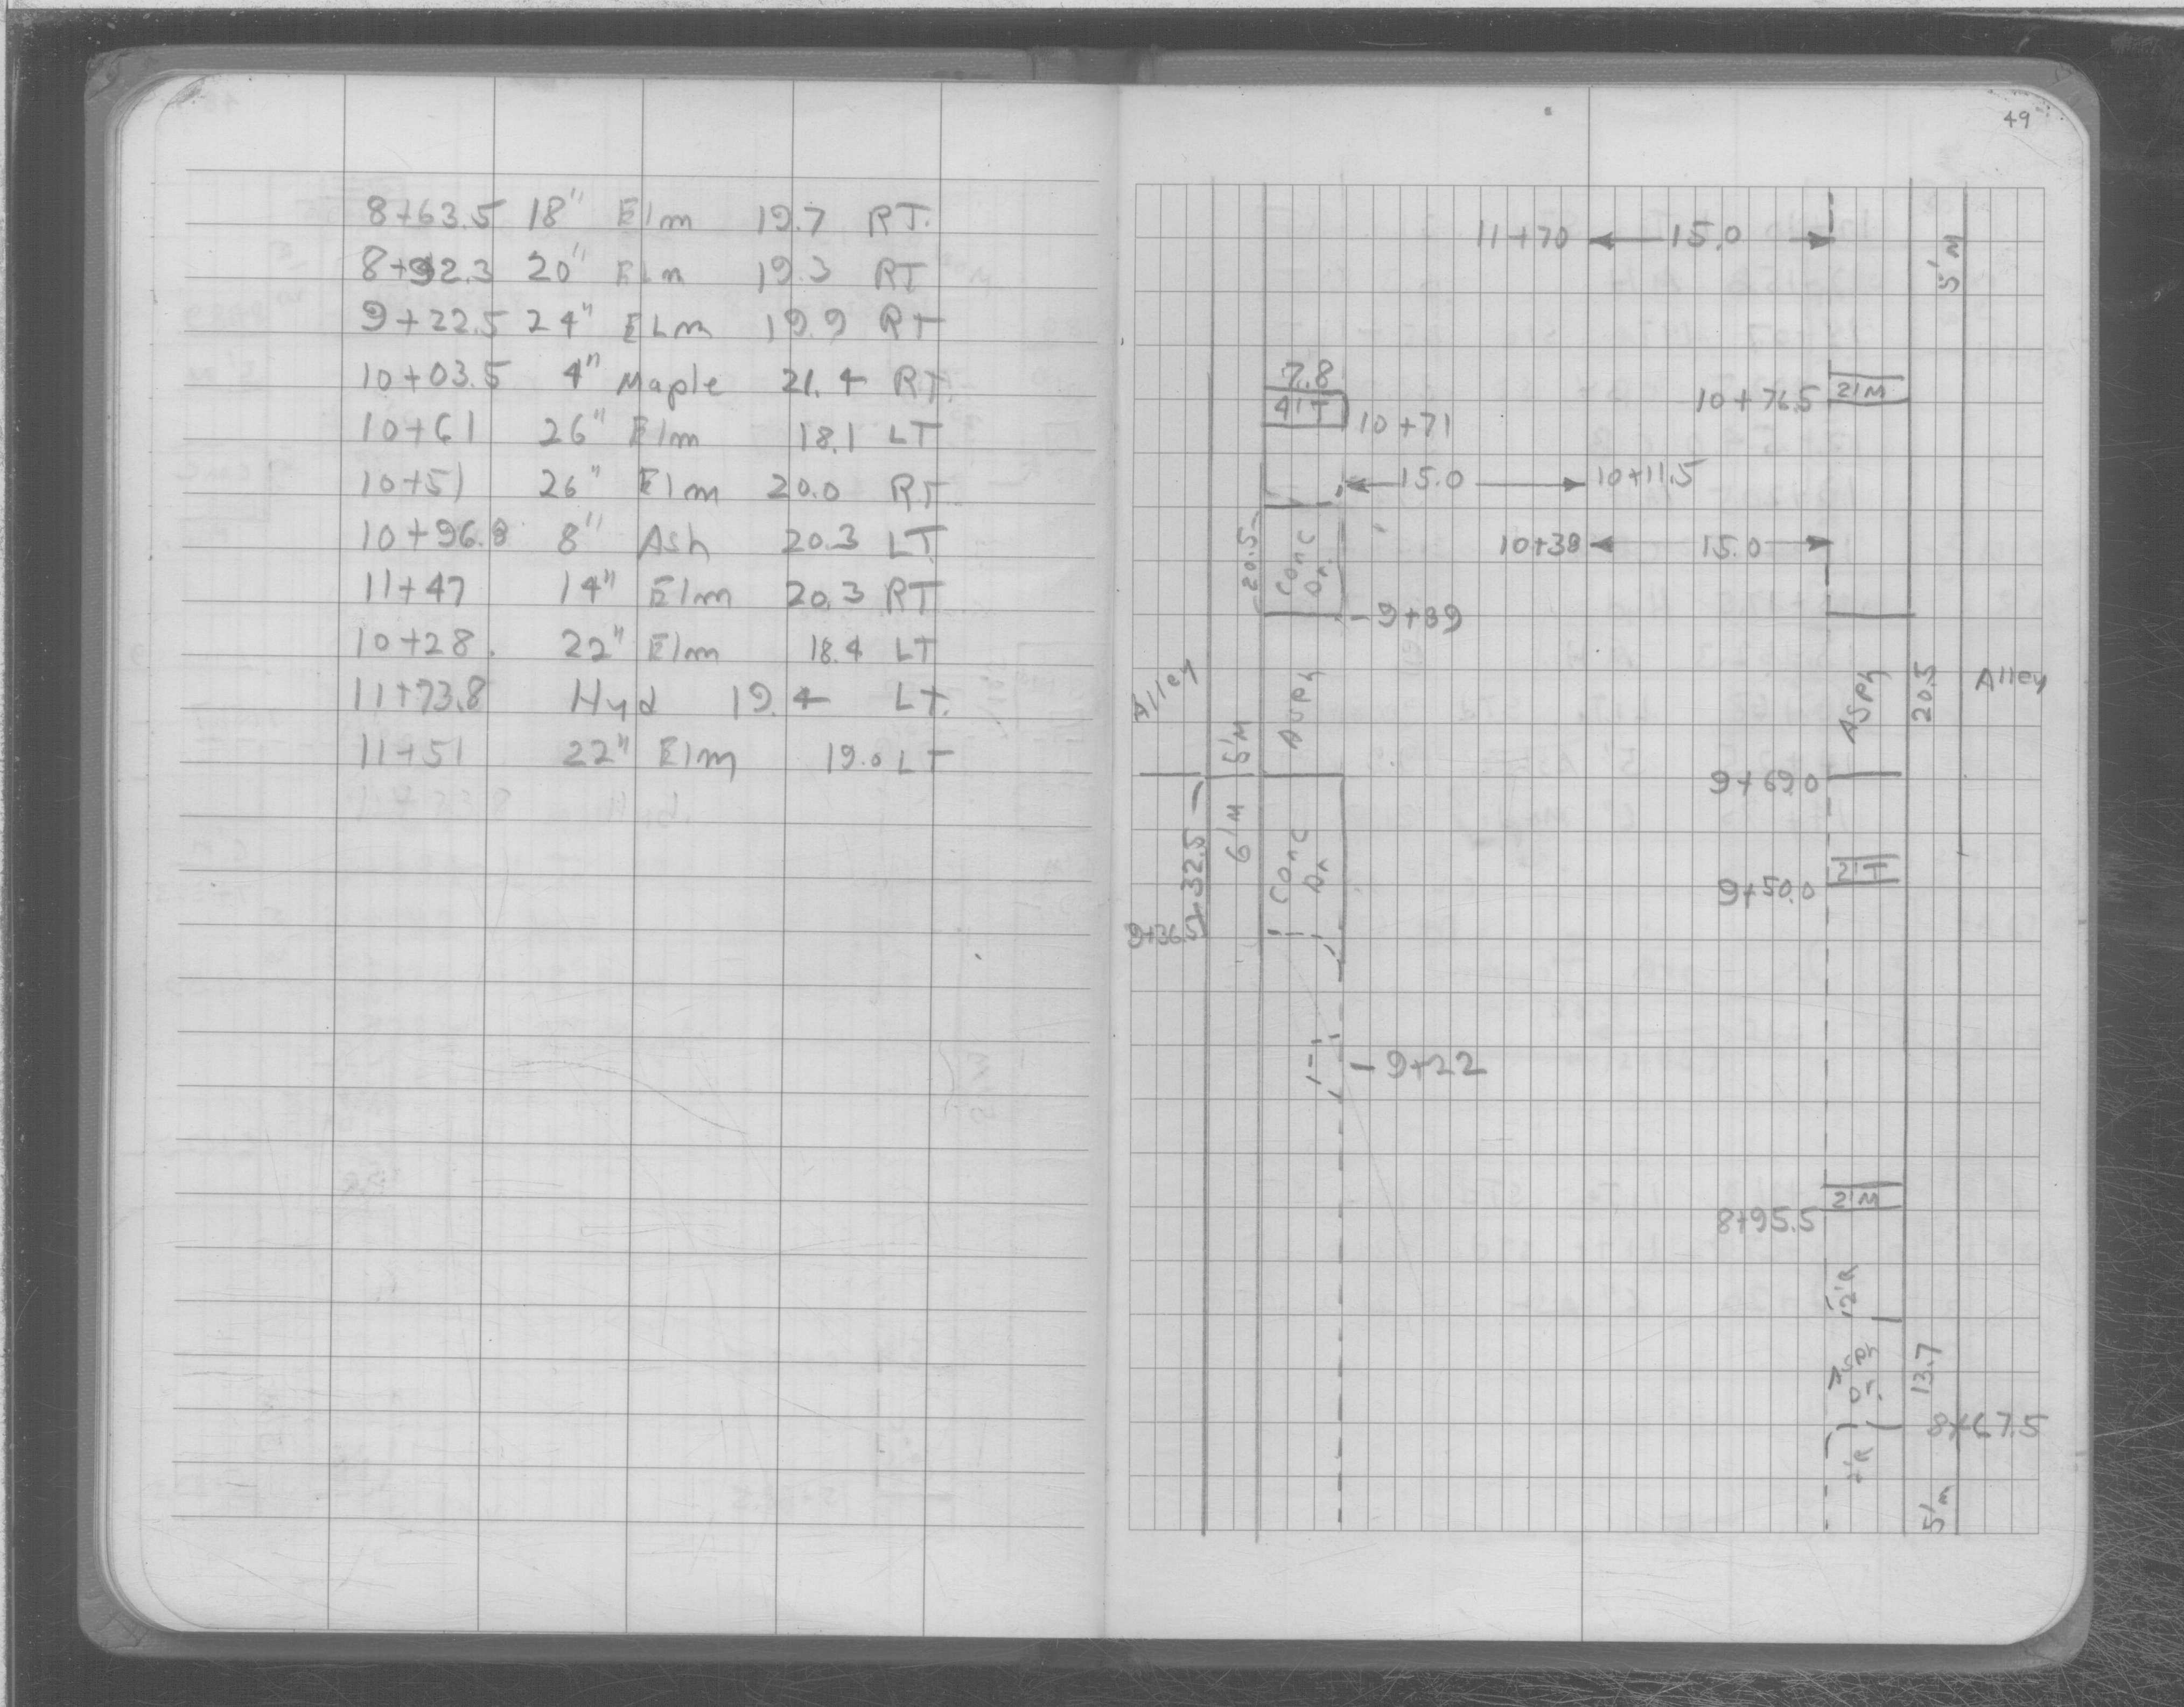 8+63.5 18" Elm 19.7 RT.
8+92.3 20" Elm 19.3 RT
9+22.5 24" Elm 19.9 RT
10+03.5 4" Maple 21.4 RT.
10+61 26" Elm 18.1 LT
10+51 26" Elm 20.0 RT
10+96.8 8" Ash 20.3 LT
11+47 14" Elm 20.3 RT
10+28. 22" Elm 18.4 LT
11+73.8 Hyd 19.4 LT.
11+51 22" Elm 19.0 LT
49
11+70 15.0
5'M
7.8
4'T
10+71
10+76.5 2'M
15.0 10+11.5
20.5
Conc
Dr.
10+38 15.0
9+89
Alley
5'M
Asph
Asph
20.5
Alley
9+69.0
32.5
6'M
Conc
Dr
2'T
9+50.0
9+36.5
9+22
2'M
8+95.5
12'R
Asph
Dr.
13.7
8+67.5
5'M